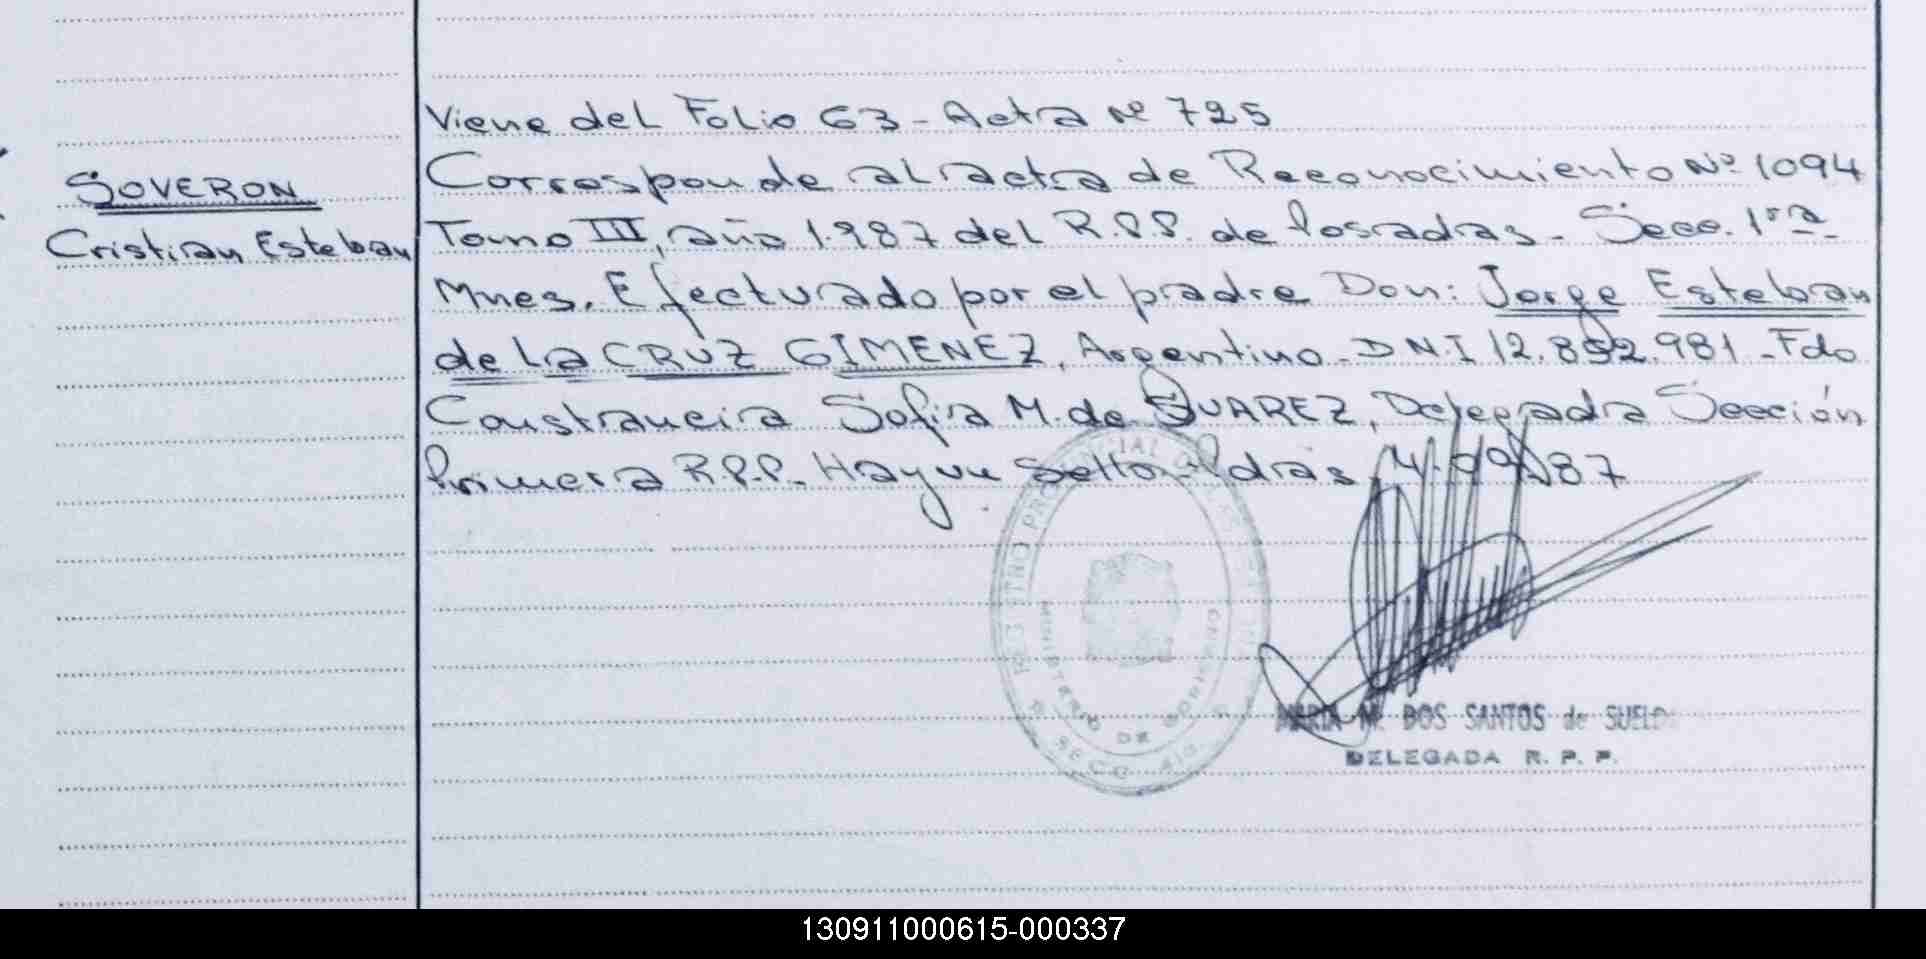 Viene del Folio 63 - Acta Nº 725
SOVERON
Cristian Esteban
Corresponde al acta de Reconocimiento Nº 1094
Tomo III, año 1.987 del R.P.P. de Posadas - Secc. 1ra
Mnes. Efectuado por el padre Don: Jorge Esteban
de La CRUZ GIMENEZ, Argentino - D.N.I 12.852.981 - Fdo
Constancia Sofia M. de SUAREZ, Delegada Sección
Primera R.P.P. - Hay un Sello - Pdas
REGISTRO PROVINCIAL DE LAS
MINISTERIO DE GOBIERNO
SECC.
MARIA M. DOS SANTOS de SUELDO
DELEGADA R. P. P.
130911000615-000337